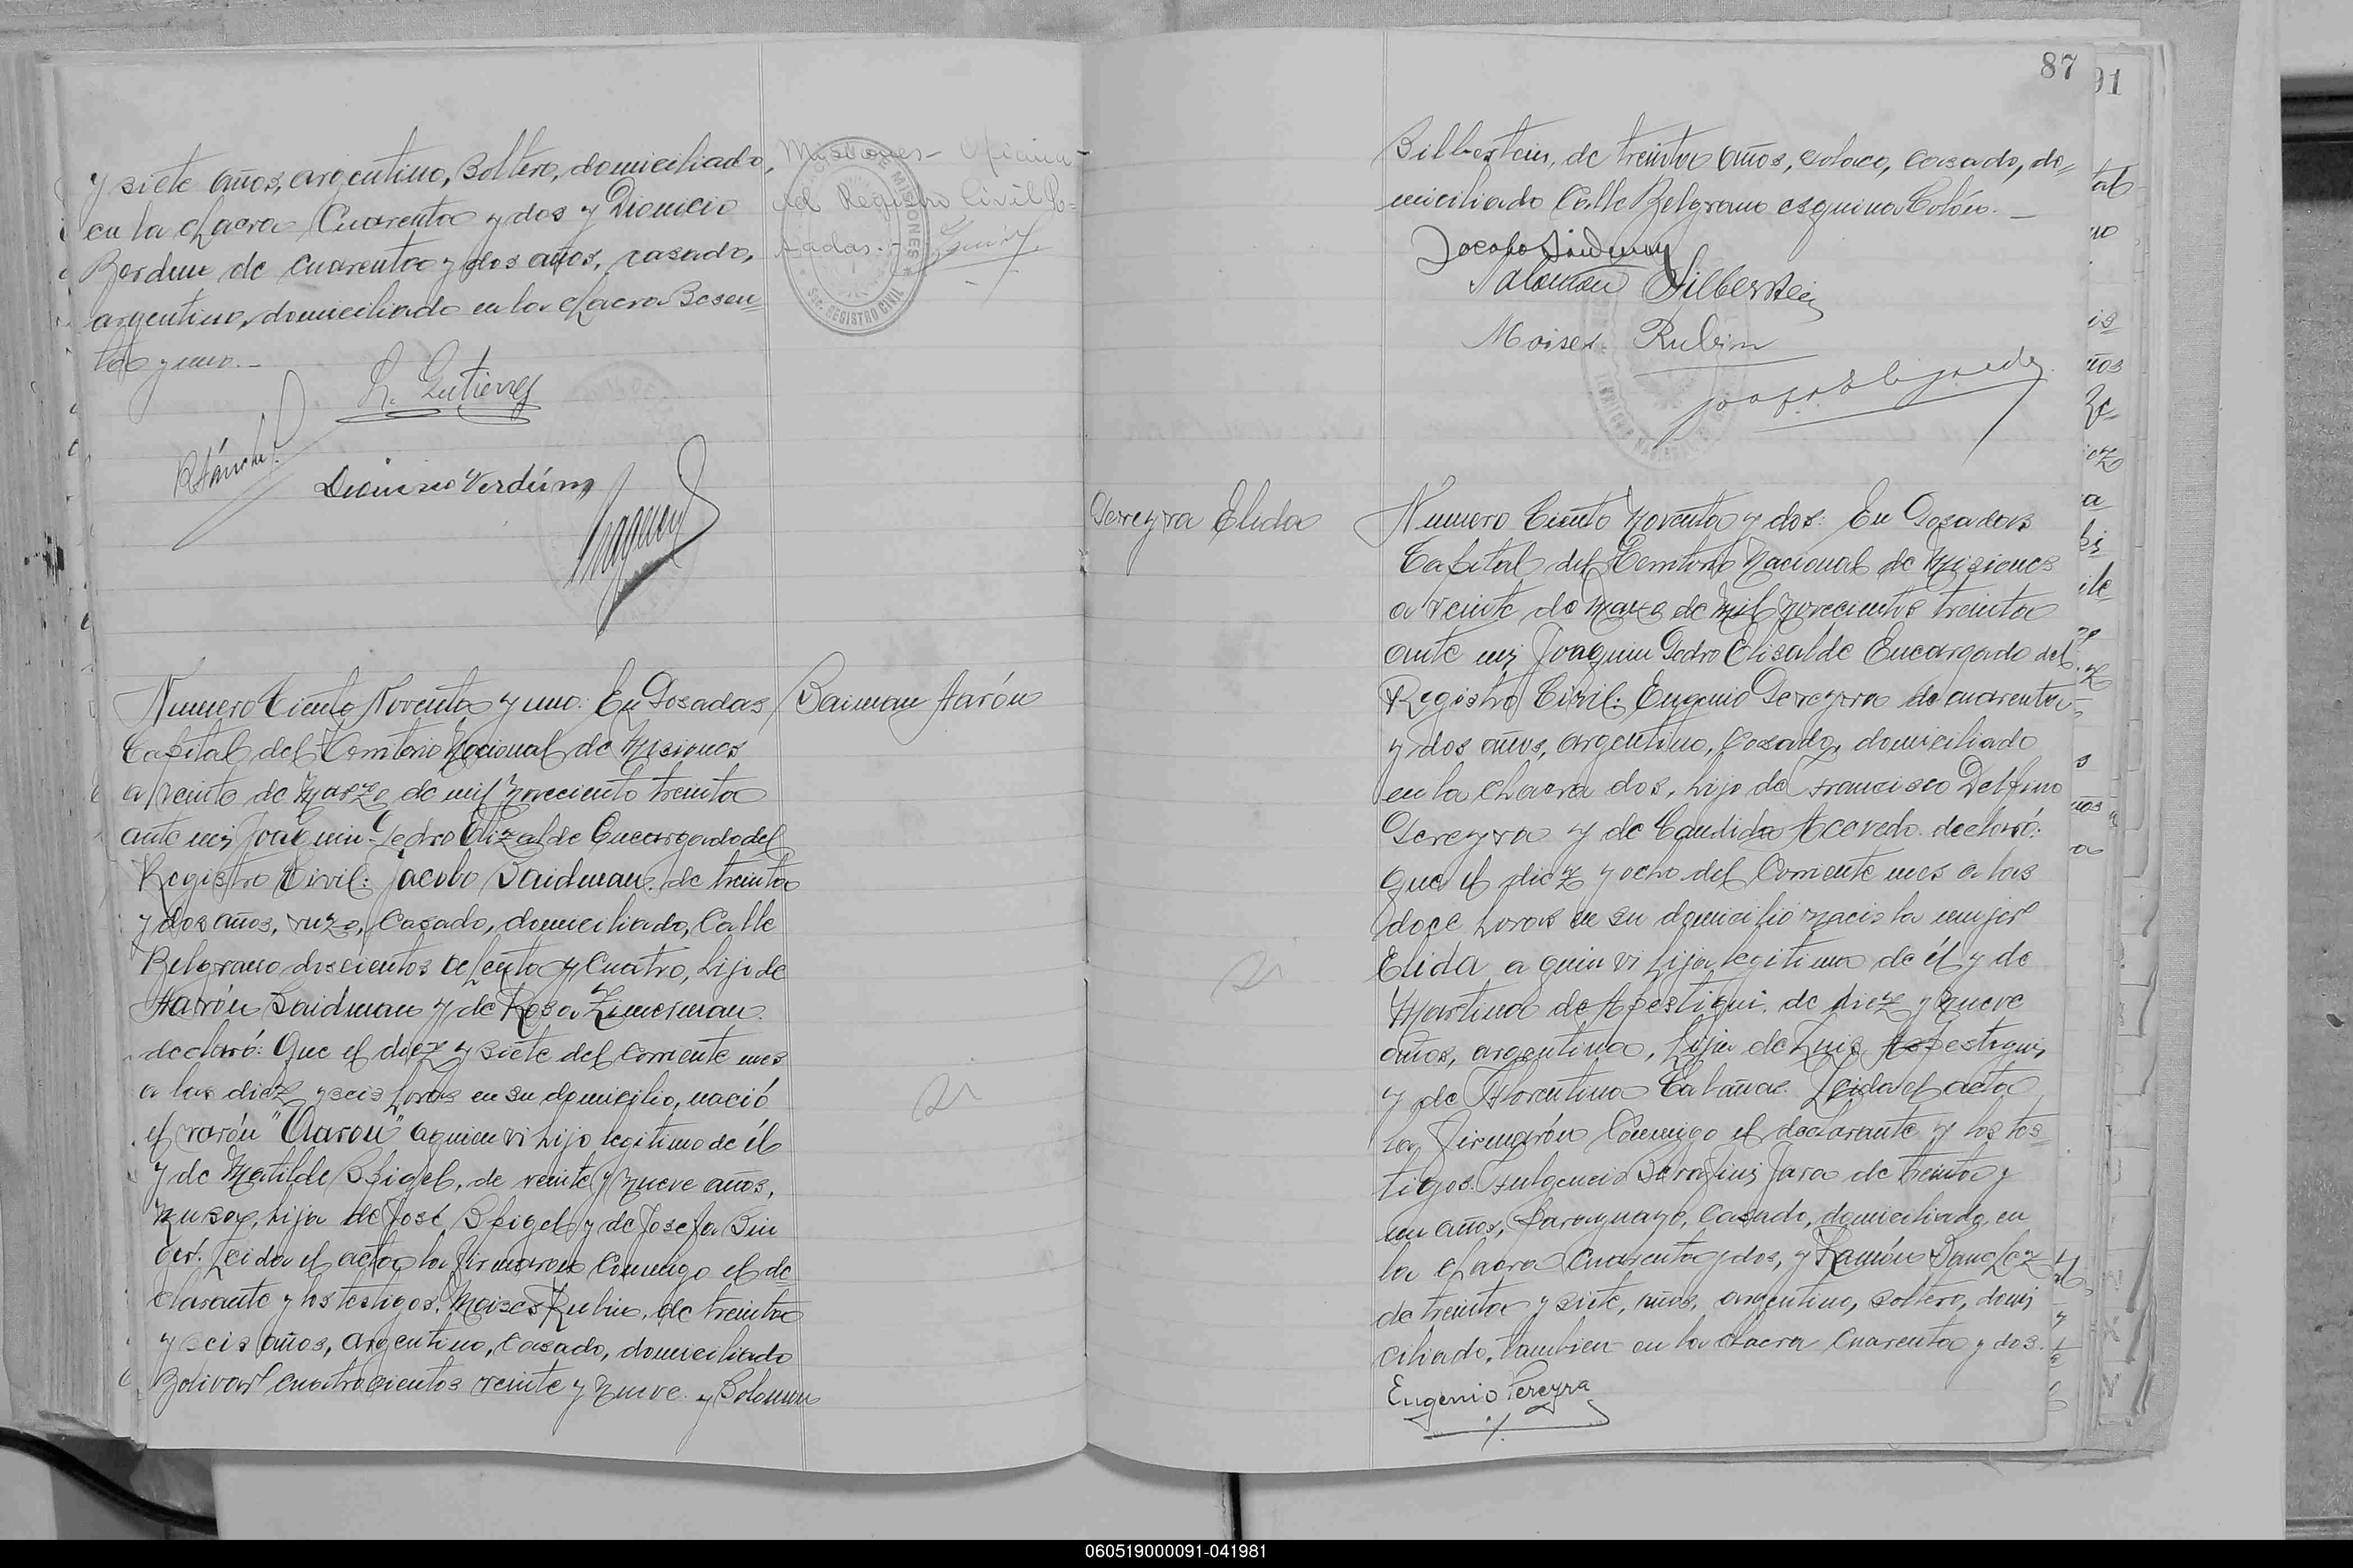 y siete años, argentino, Soltero, domiciliado,
en la chacra Cuarenta y dos y Dionicio
Berdun de cuarenta y dos años, casado,
argentino, domiciliado en la chacra Sesen=
ta y uno.—
L. Gutierrez
R Sánchez
Dionisio Verdúm
Misiones – Oficina
del Registro Civil Po=
sadas.–
MISIONES
REGISTRO CIVIL
Numero Ciento Noventa y uno: En Posadas
Capital del Territorio Nacional de Misiones
a veinte de Marzo de mil Noveciento treinta
ante mi, Joaquin Pedro Elizalde Encargado del
Registro Civil: Jacobo Saidman de treinta
y dos años, ruzo, Casado, domiciliado, Calle
Belgrano doscientos ochenta y Cuatro, hijo de
Aarón Saidman y de Rosa Zimerman.
declaró: Que el diez y siete del Corriente mes
a las diez y seis horas en su domicilio, nació
el varón "Aaron" a quien vi hijo legitimo de él
y de Matilde Spigel, de veinte y nueve años,
ruza, hija de José Spigel y de Josefa Sin
ger. Leida el acta la firmaron Conmigo el de=
clarante y los testigos. Moises Rubin, de treinta
y seis años, Argentino, Casado, domiciliado
Bolivar cuatrocientos veinte y nueve y Solomon
Saiman Aarón
87
91
Silberstein, de treinta años, polaco, casado, do=
miciliado Calle Belgrano esquina Colón.—
Jacobo Saidman
Salomon Silberstein
Moises Rubin
Pereyra Elida
Número Ciento Noventa y dos: En Posadas
Capital del Territorio Nacional de Misiones
a veinte de Marzo de Mil Novecientos treinta
ante mi, Joaquin Pedro Elisalde Encargado del
Registro Civil: Eugenio Pereyra de cuarenta
y dos años, argentino, Casado, domiciliado
en la Chacra dos, hijo de Francisco Delfino
Pereyra y de Candida Acevedo declaró:
Que el diez y ocho del Corriente mes a las
doce horas en su domicilio nacio la mujer
Elida a quien vi hija legitima de él y de
Martina de Apestigui, de diez y nueve
años, argentina, hija de Luis Apestegui,
y de Florentina Cabañas. Leida el acta
la firmarón Conmigo el declarante y los tes=
tigos. Fulgencio Serafini Jara de treinta y
un años, Paraguayo, Casado, domiciliado en
la chacra Cuarenta y dos, y Ramón Sanchez
de treinta y siete, años, argentino, soltero, domi
ciliado, tambien en la chacra Cuarenta y dos.
Eugenio Pereyra
060519000091-041981